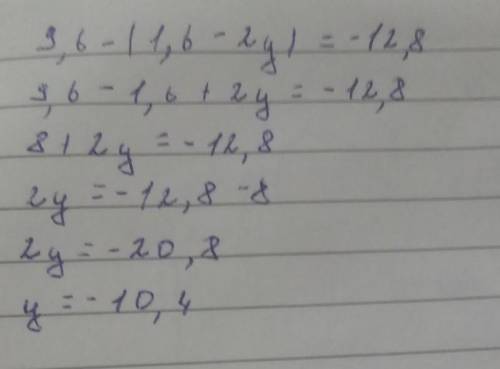 9,6 - (1,6 - 2y) = -12,8
9,6 - 1,6 + 2y = -12,8
8 + 2y = -12,8
2y = -12,8 -8
2y = -20,8
y = -10,4